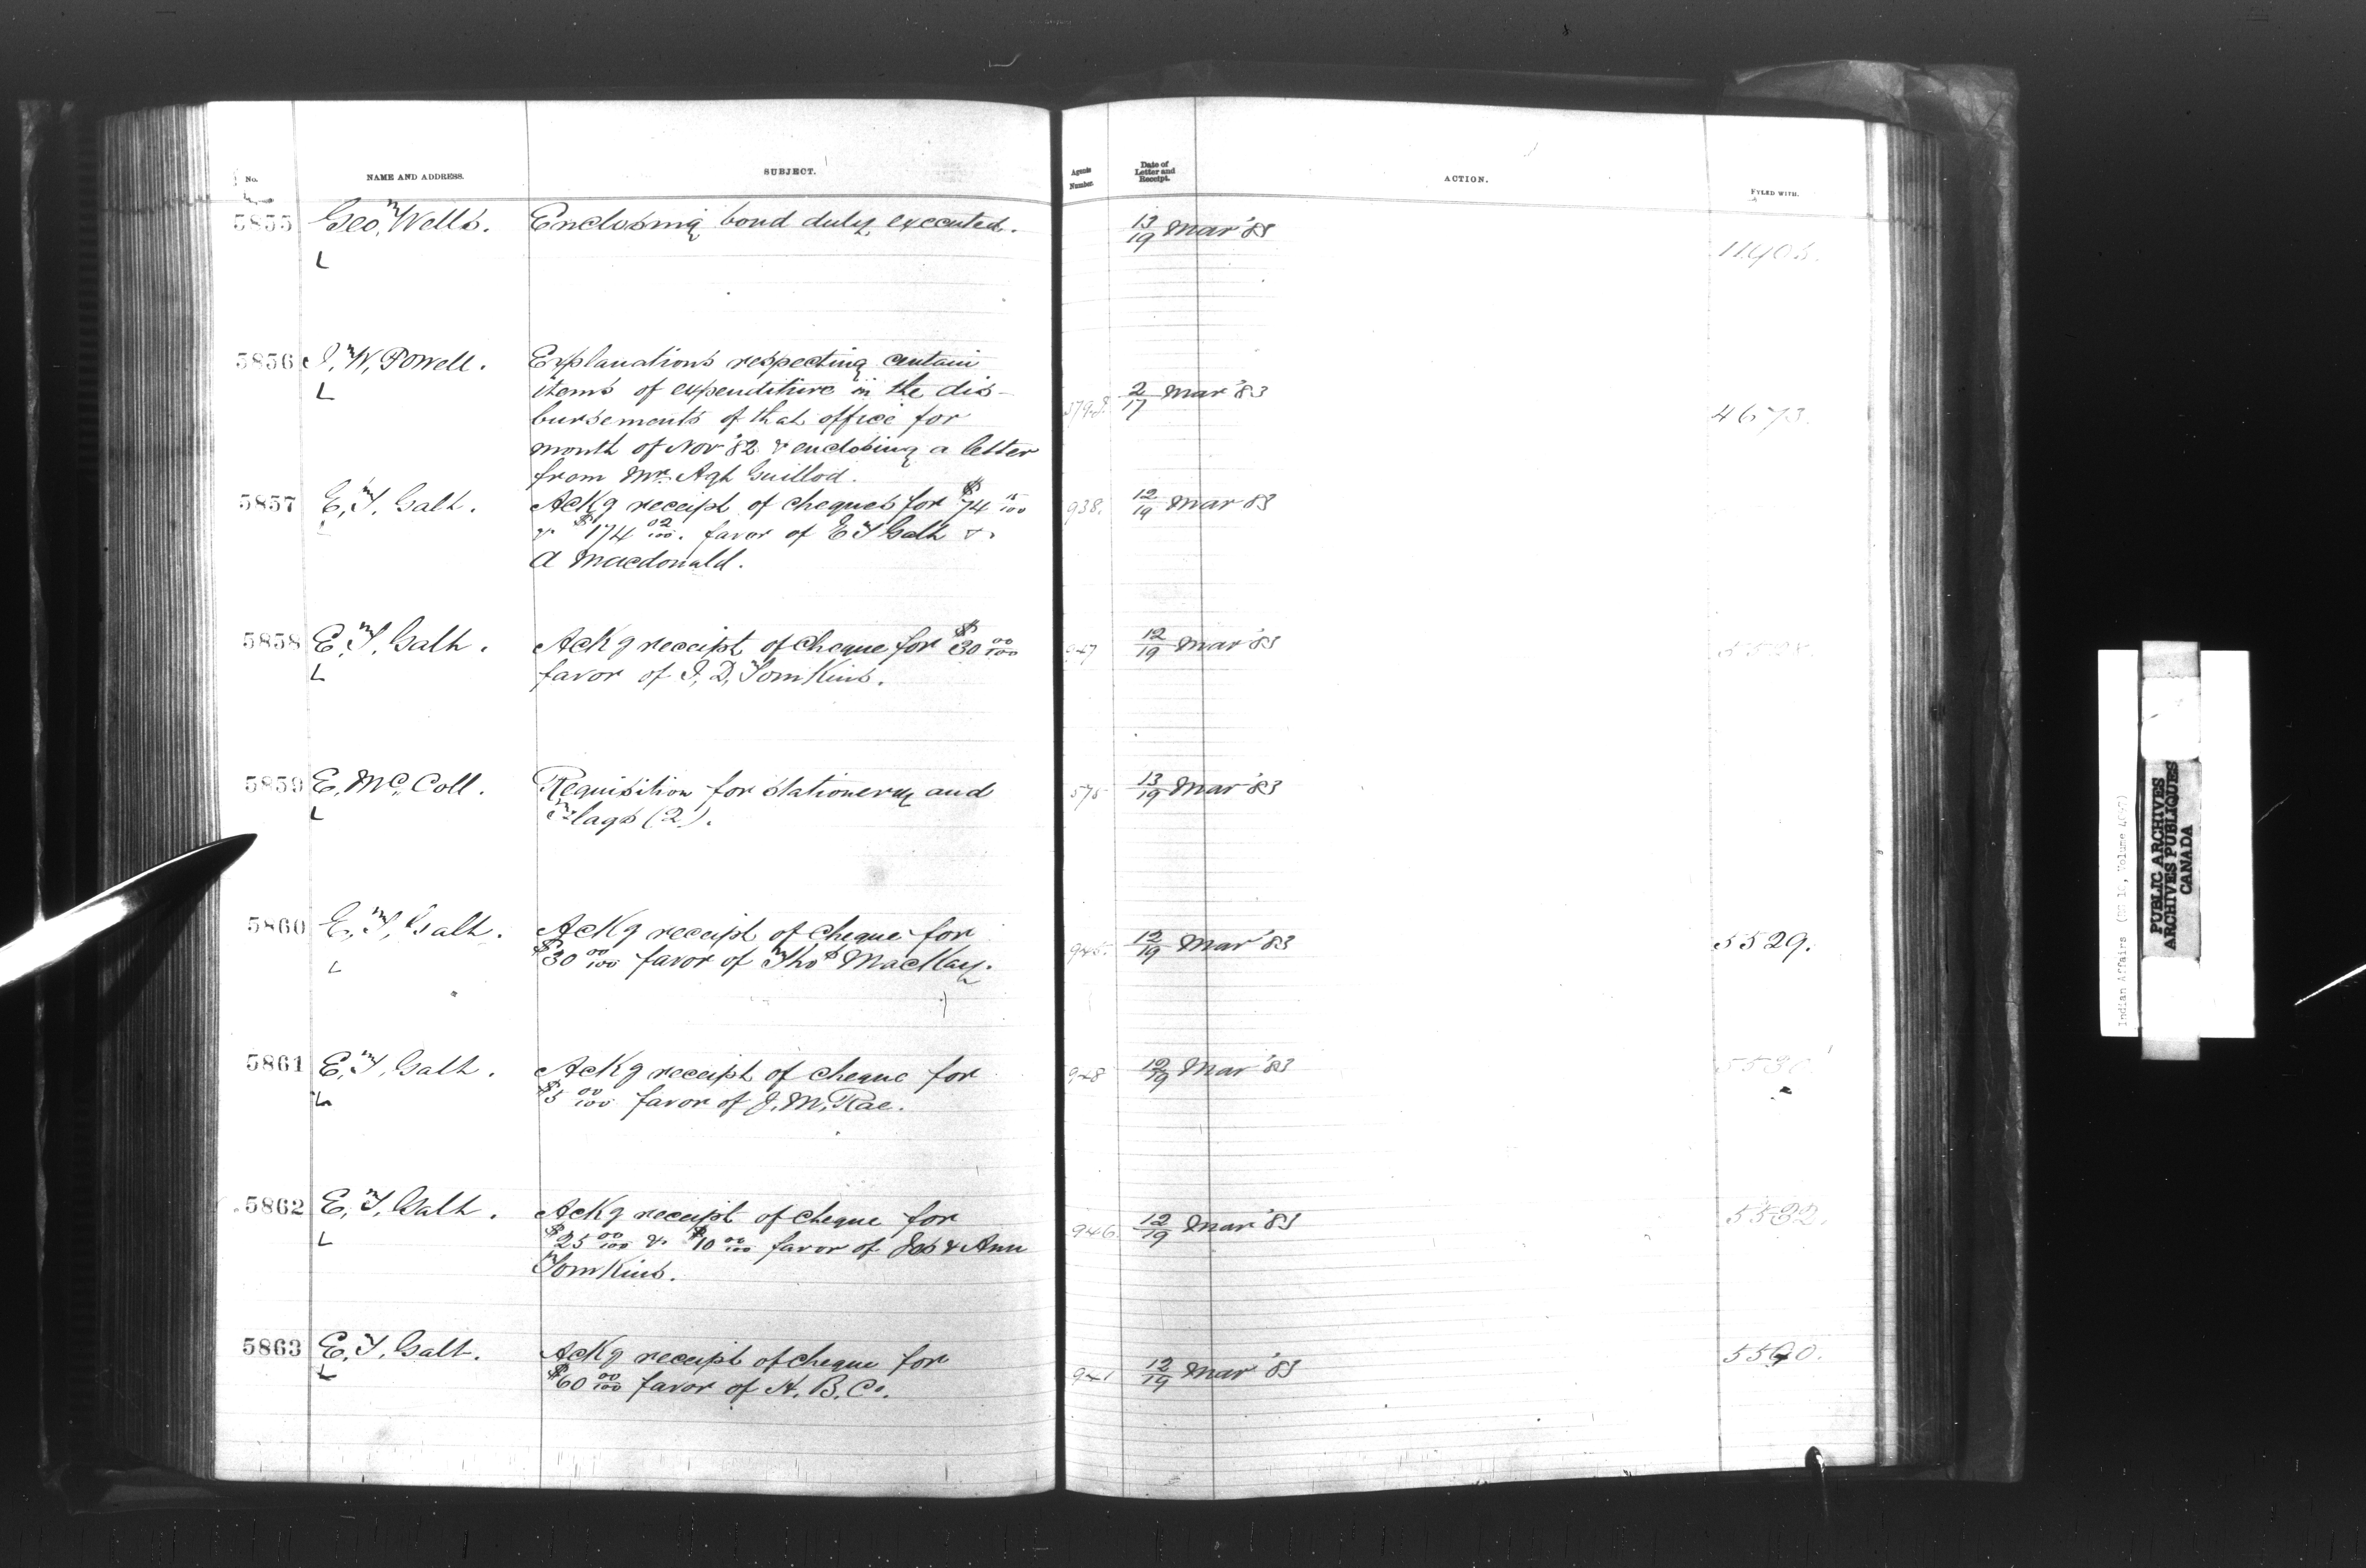 No.
NAME AND ADDRESS.
SUBJECT.
Agents Number.
Date of Letter and Receipt.
ACTION.
FYLED WITH.
5855 Geo. Wells. Enclosing bond duly executed. 13/19 Mar '83
L
5856 I. W. Powell. Explanations respecting certain
L items of expenditure in the dis- 2/17 Mar '83
bursements of that office for 4673.
month of Nov '82 & enclosing a letter
from Mr. Agt Guillod.
5857 E. T. Galt. Ackg receipt of cheques for $74 15/100 938. 12/19 Mar 83
& $174 02/100. favor of E T Galt &
A Macdonald.
5858 E. T. Galt. Ackg receipt of cheque for $30 00/100 947 12/19 Mar '83
L favor of I. D. Tomkins.
5859 E. Mc. Coll. Requisition for stationery and 575 13/19 Mar '83
L Flags (2).
5860 E. T. Galt. Ackg receipt of cheque for 945. 12/19 Mar '83 5529.
L $30 00/100 favor of Thos MacKay.
5861 E. T. Galt. Ackg receipt of cheque for 948 12/19 Mar '83
L $5 00/100 favor of J. M. Rae.
5862 E. T. Galt. Ackg receipt of cheque for 946 12/19 Mar '83 5532.
L $25 00/100 & $10 00/100 favor of Jos & Ann
Tomkins.
5863 E. T. Galt. Ackg receipt of cheque for 941 12/19 Mar '83
L $60 00/100 favor of H. B. Co.
Indian Affairs
PUBLIC ARCHIVES
ARCHIVES PUBLIQUES
CANADA